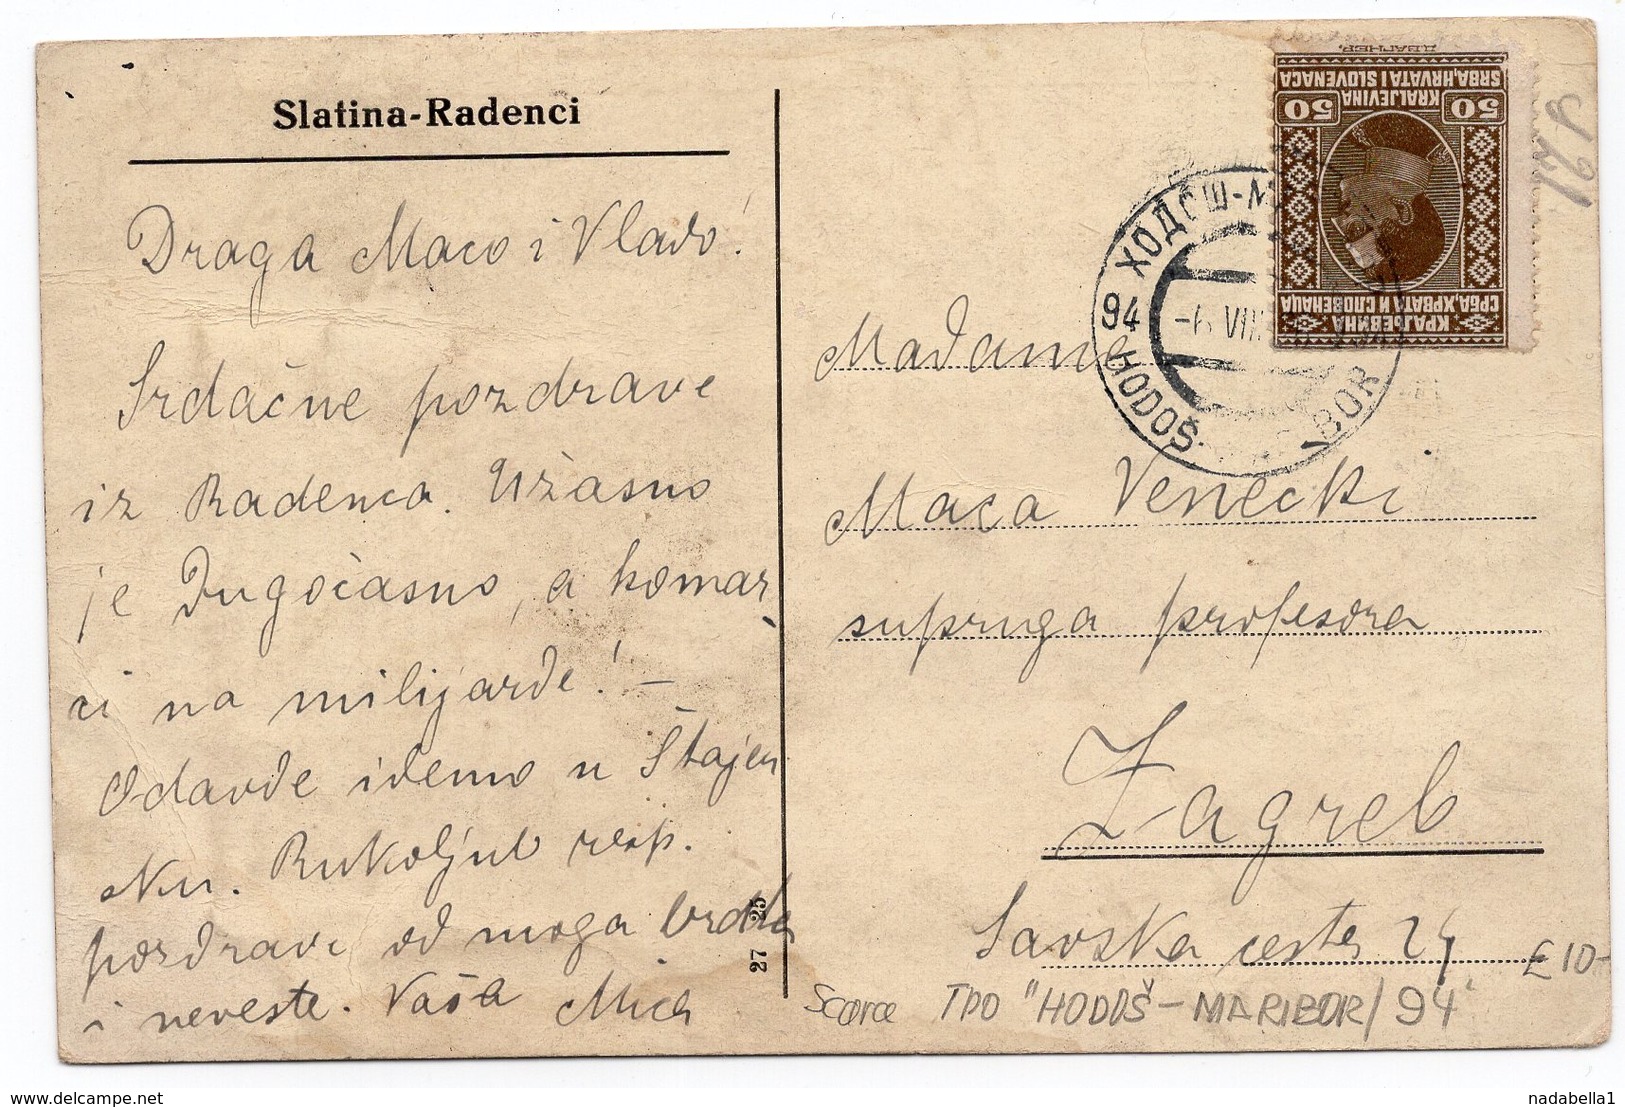 Slatina-Radenci
Draga Maco i Vlado!
Srdačne pozdrave
iz Radenca. Užasno
je dugočasno, a komar
ci na milijarde! –
Odavde idemo u Štajer
sku. Rukoljub resp.
pozdravi od moga brata
i neveste. Vaša Mica
27 25
Madame
Maca Venecki
supruga profesora
Zagreb
Savska cesta 24
£10-
Scarce TPO "HODOŠ - MARIBOR/94"
ДВАГНЕР.
SRBA, HRVATA I SLOVENACA
KRALJEVINA
50 50
СРБА, ХРВАТА И СЛОВЕНАЦА
КРАЉЕВИНА
ХОДОШ-М
94 -6 VIII
HODOŠ BOR
www.delcampe.net
nadabella1